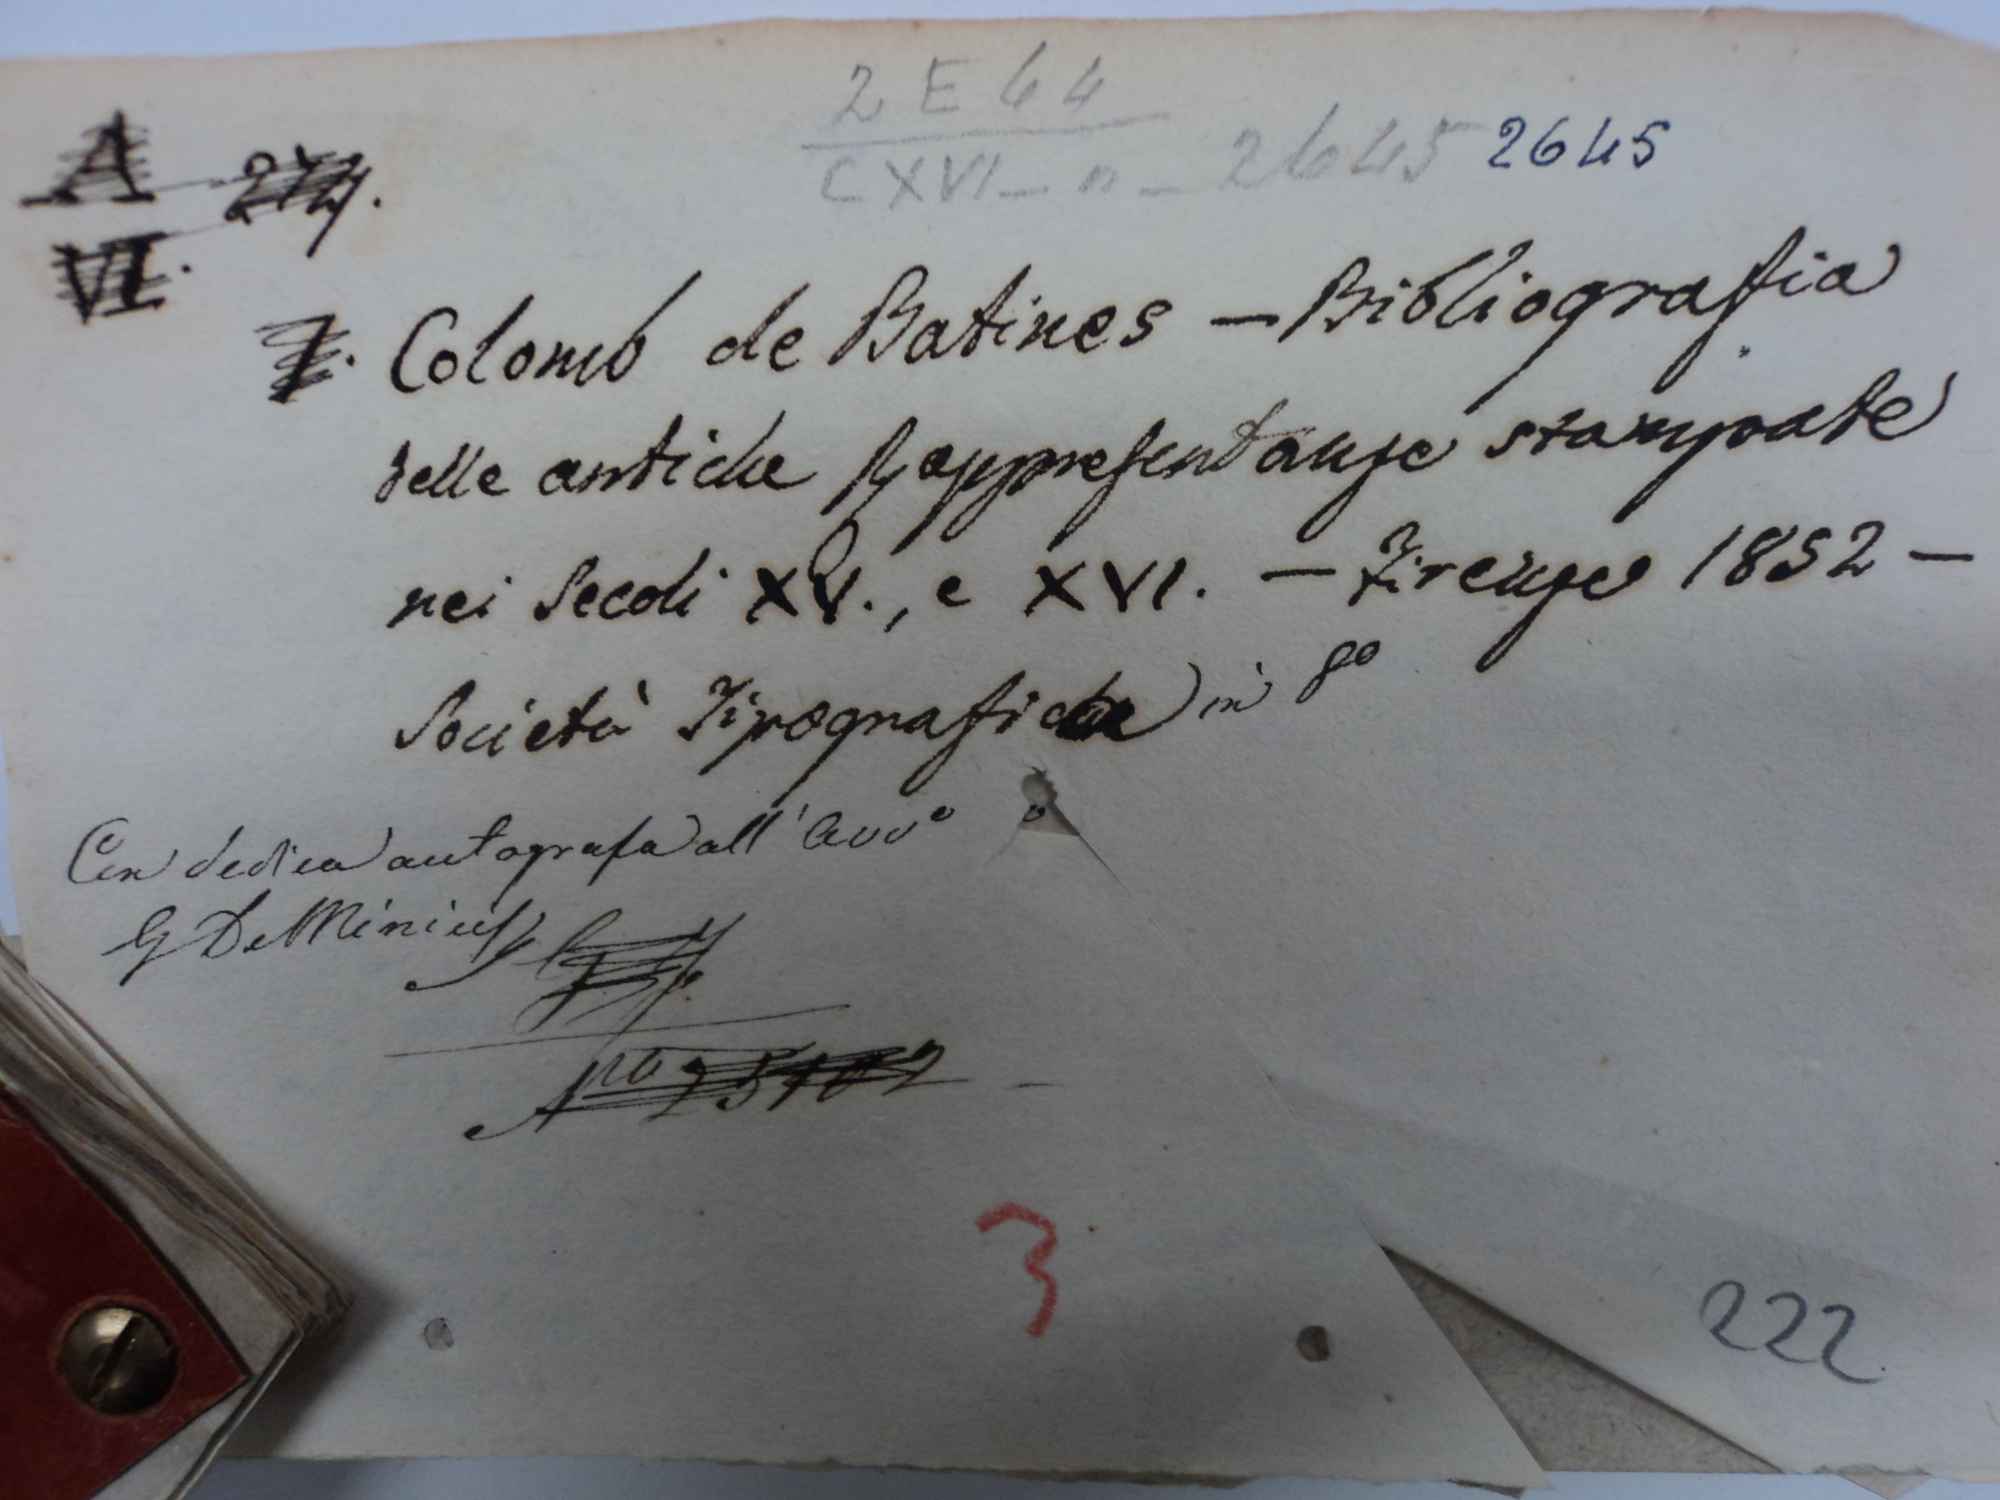 2 E 64
CXVI - n - 2645 2645
A
VI.
Colomb de Batines - Bibliografia
delle antiche Rappresentanze stampate
nei Secoli XV., e XVI. - Firenze 1852 -
Società Tipografica in 8º
Con dedica autografa all'Avvº
G De Minicis
3
222